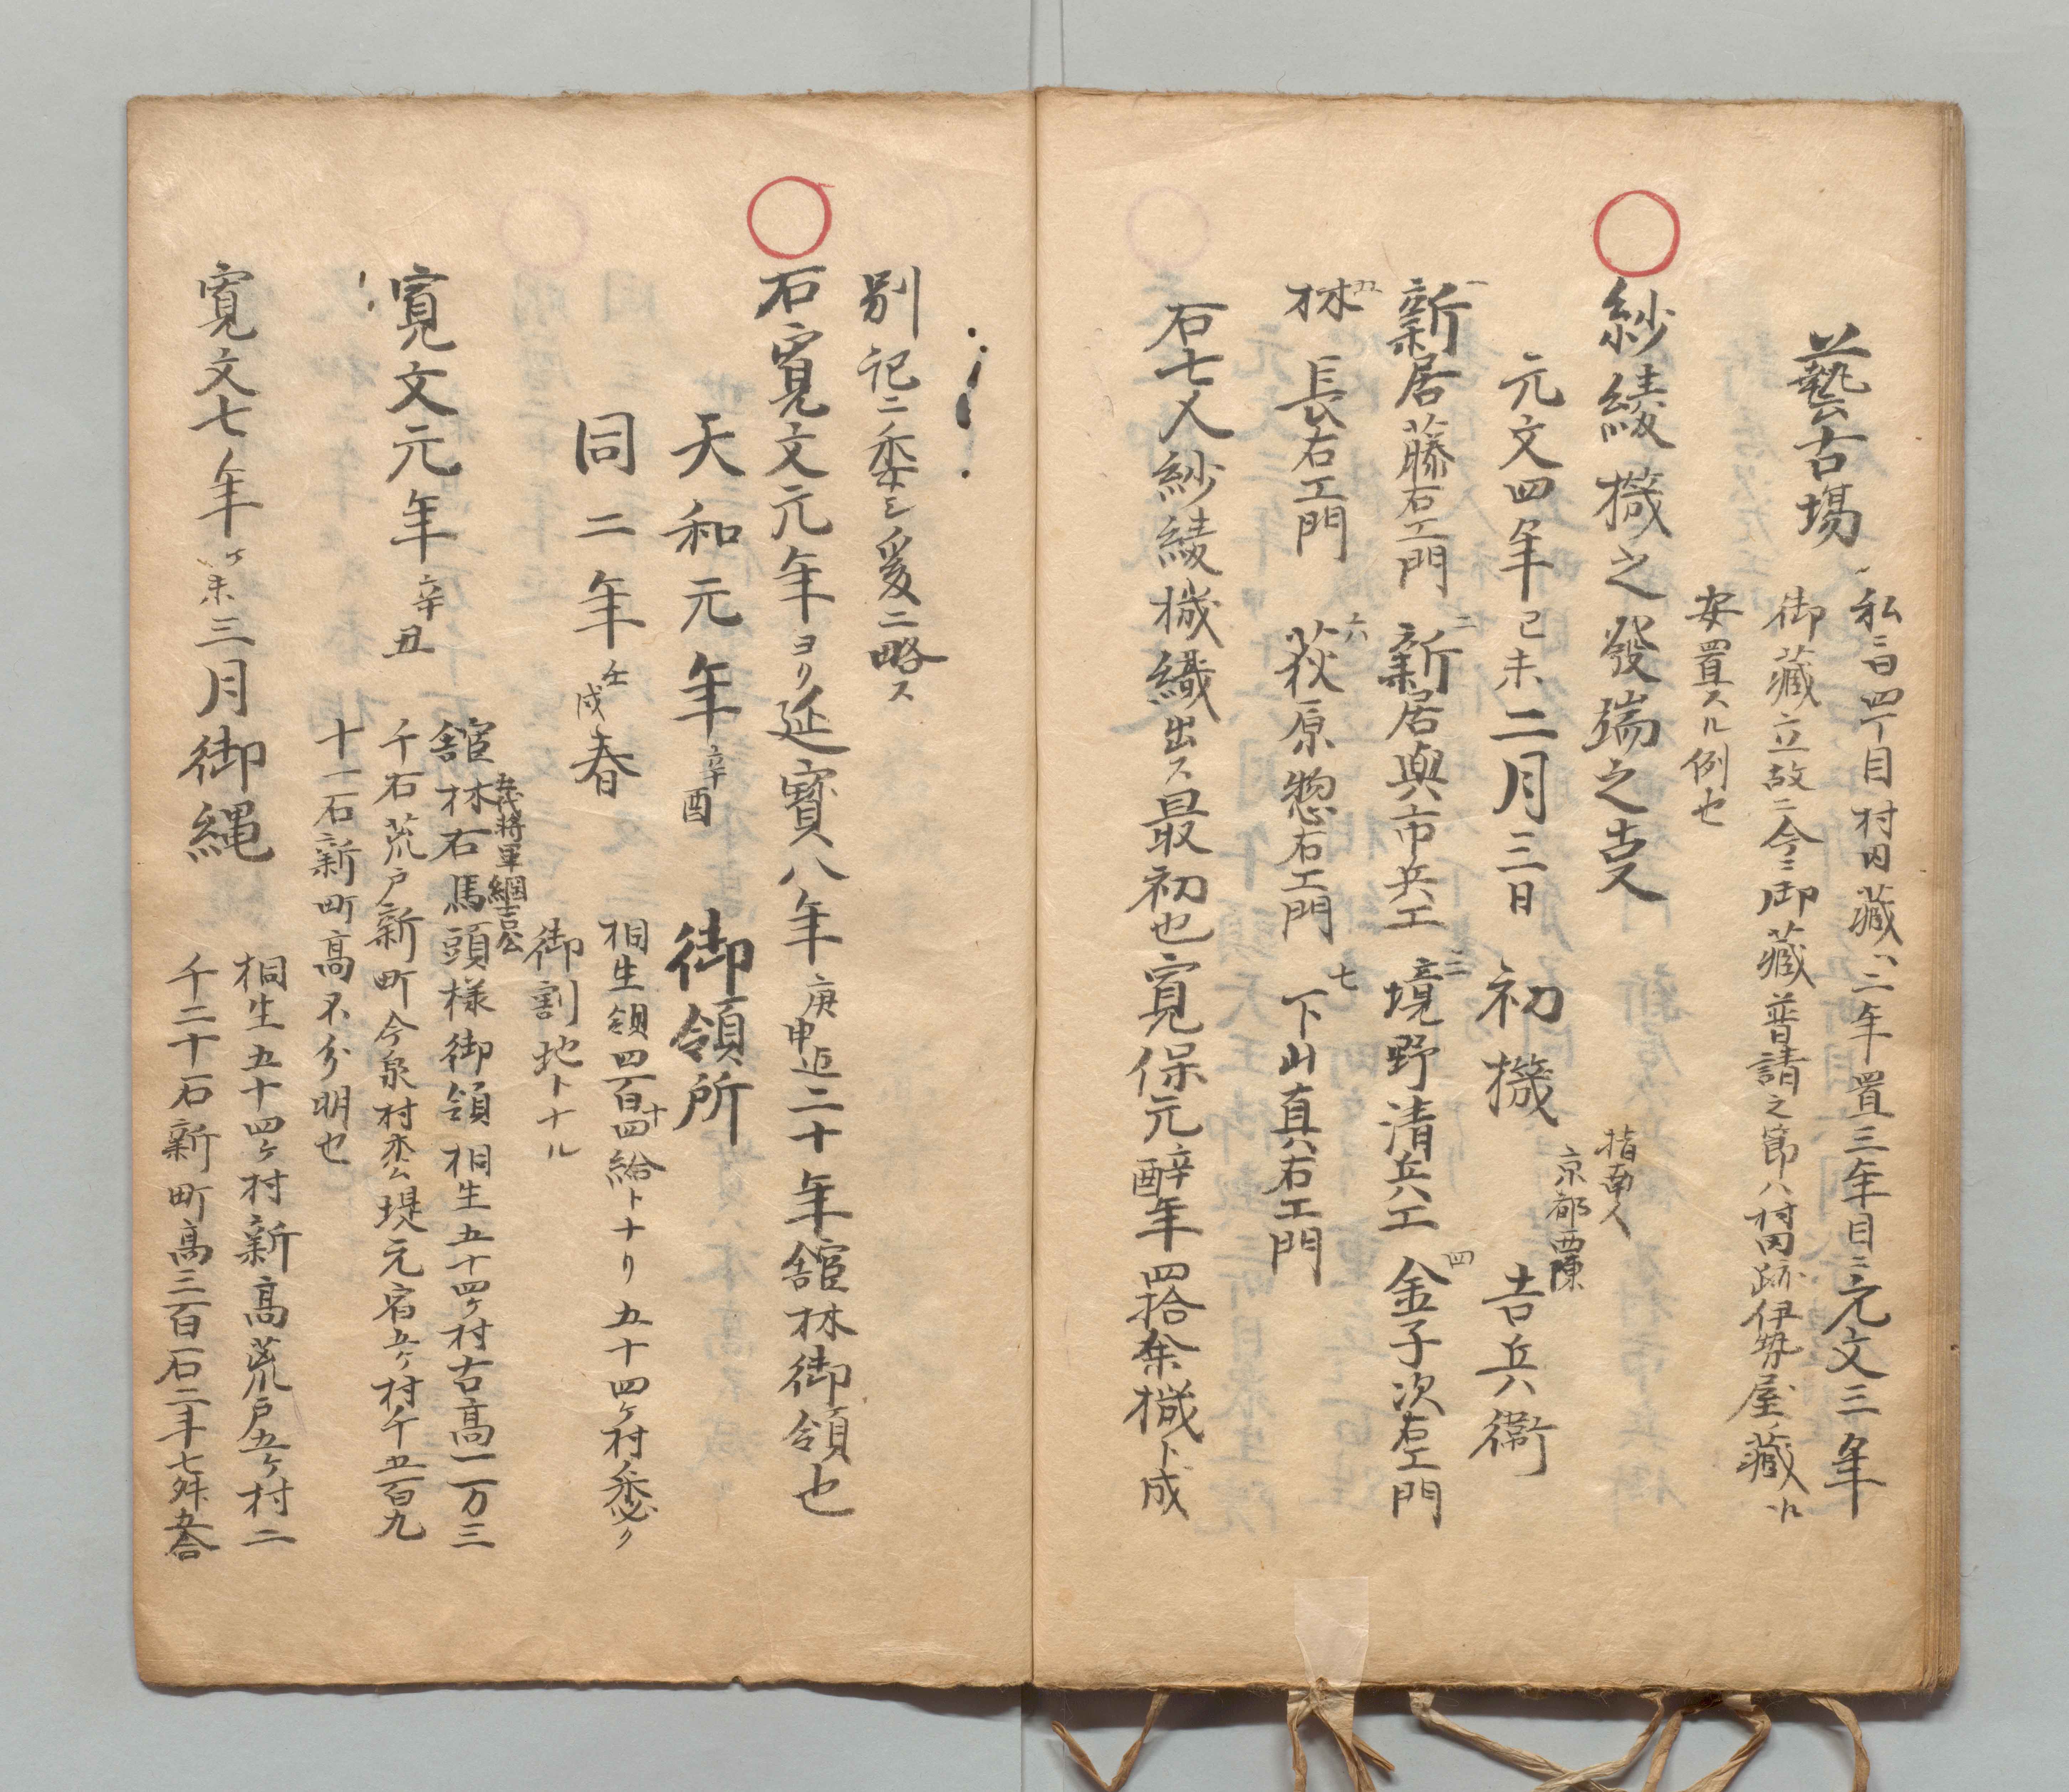 藝古場
私ニ曰四丁目村内藏ハ二年置三年目ニ元文三年
御藏立故ニ今ニ御藏普請之節ハ村内跡伊勢屋藏ハ
安置スル例也
紗綾機之發端之事
元文四年己未二月三日　初機
指南人
京都西陳
吉兵衛
一新居藤右エ門　二新居與市兵エ　三境野清兵エ　四金子次右エ門
五林　長右エ門　六荻原惣右エ門　七下山真右エ門
右七人紗綾機織出ス最初也寛保元酉年四拾余機ト成
別記ニ委シ爰ニ略ス
右寛文元年ヨリ延寳八年庚申迄二十年舘林御領也
天和元年辛酉　御領所
同二年壬戌春
桐生領四百四十給トナリ五十四ヶ村悉ク
御割地トナル
寛文元年辛丑
後将軍綱吉公
舘林右馬頭様御領桐生五十四ヶ村古高一万三
千石荒戸新町今泉村本公堤元宿五ヶ村千五百九
十一石新町高不分明也
寛文七年未三月御縄
桐生五十四ヶ村新高荒戸五ヶ村二
千二十一石新町高三百一石二斗七舛五合